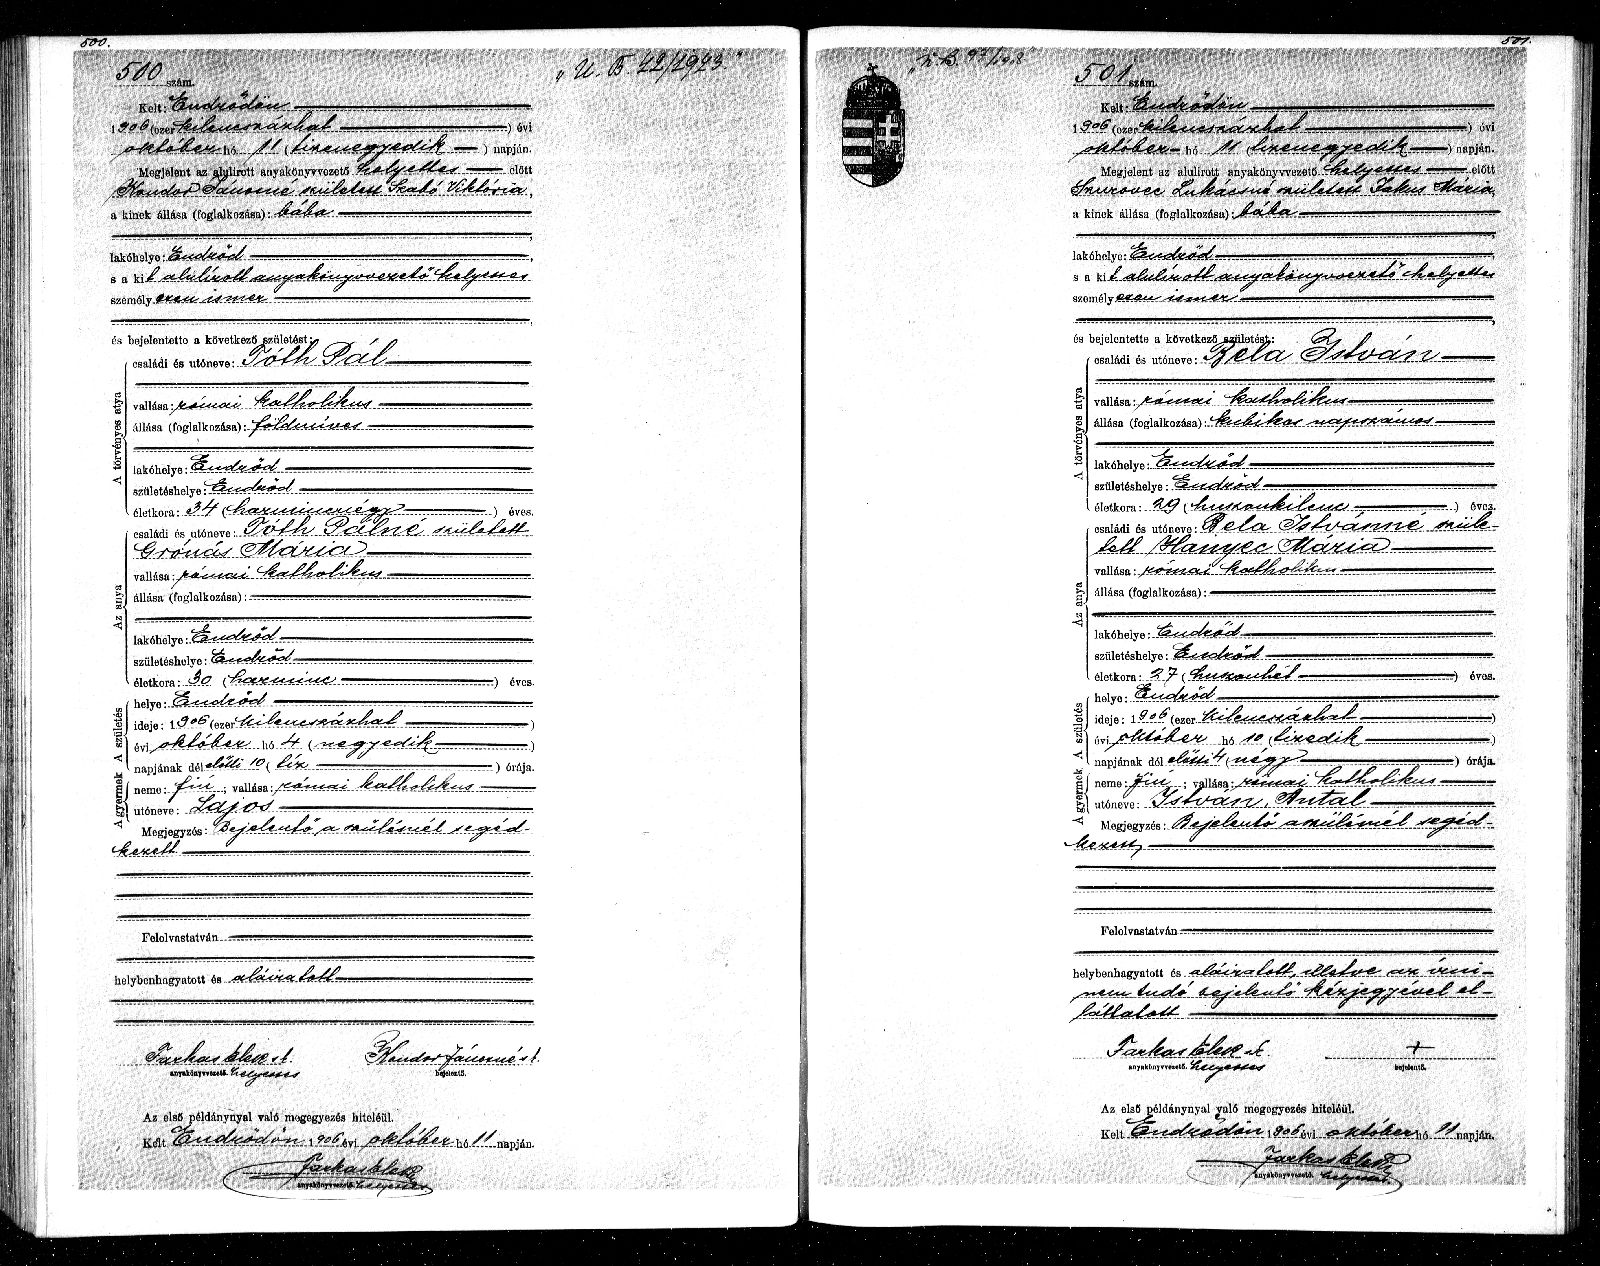 500.
500 szám.
„U. B 22/1923."
Kelt: Endrődön
1906 (ezerkilencszázhat) évi
október hó 11 (tizenegyedik) napján.
Megjelent az alulirott anyakönyvvezető helyettes előtt
Kondor Jánosné született Szabó Viktória,
a kinek állása (foglalkozása): bába
lakóhelye: Endrőd,
s a kit alulírott anyakönyvvezető helyettes
személyesen ismer,
és bejelentette a következő születést:
A törvényes atya
családi és utóneve: Tóth Pál
vallása: római katholikus
állása (foglalkozása): földmíves
lakóhelye: Endrőd
születéshelye: Endrőd
életkora: 34 (harmincnégy) éves.
Az anya
családi és utóneve: Tóth Pálné született
Grónás Mária
vallása: római katholikus
állása (foglalkozása):
lakóhelye: Endrőd
születéshelye: Endrőd
életkora: 30 (harminc) éves.
A születés
helye: Endrőd
ideje: 1906 (ezerkilencszázhat)
évi október hó 4 (negyedik)
napjának délelőtti 10 (tíz) órája.
A gyermek
neme: fiú; vallása: római katholikus
utóneve: Lajos
Megjegyzés: Bejelentő a szülésnél segéd-
kezett
Felolvastatván
helybenhagyatott és aláiratott
Farkas Elek s.k. Kondor Jánosné s.k.
anyakönyvvezető. helyettes bejelentő.
Az első példánynyal való megegyezés hiteléül.
Kelt Endrődön 1906 évi október hó 11 napján.
Farkas Elek
anyakönyvvezető. helyettes
501.
501 szám.
Kelt: Endrődön
1906 (ezerkilencszázhat) évi
október hó 11 (tizenegyedik) napján.
Megjelent az alulirott anyakönyvvezető helyettes előtt
Szurovec Lukácsné született Jakus Mária,
a kinek állása (foglalkozása): bába
lakóhelye: Endrőd,
s a kit alulírott anyakönyvvezető helyettes
személyesen ismer,
és bejelentette a következő születést:
A törvényes atya
családi és utóneve: Bela István
vallása: római katholikus
állása (foglalkozása): kubikos napszámos
lakóhelye: Endrőd
születéshelye: Endrőd
életkora: 29 (huszonkilenc) éves.
Az anya
családi és utóneve: Bela Istvánné szüle-
tett Hanyec Mária
vallása: római katholikus
állása (foglalkozása):
lakóhelye: Endrőd
születéshelye: Endrőd
életkora: 27 (huszonhét) éves.
A születés
helye: Endrőd
ideje: 1906 (ezerkilencszázhat)
évi október hó 10 (tizedik)
napjának délelőtti 4 (négy) órája.
A gyermek
neme: fiú; vallása: római katholikus
utóneve: István, Antal
Megjegyzés: Bejelentő a szülésnél segéd-
kezett,
Felolvastatván
helybenhagyatott és aláiratott, illetve az írni
nem tudó bejelentő kézjegyével el-
láttatott
Farkas Elek s.k. +
anyakönyvvezető. helyettes bejelentő.
Az első példánynyal való megegyezés hiteléül.
Kelt Endrődön 1906 évi október hó 11 napján.
Farkas Elek
anyakönyvvezető. helyettes